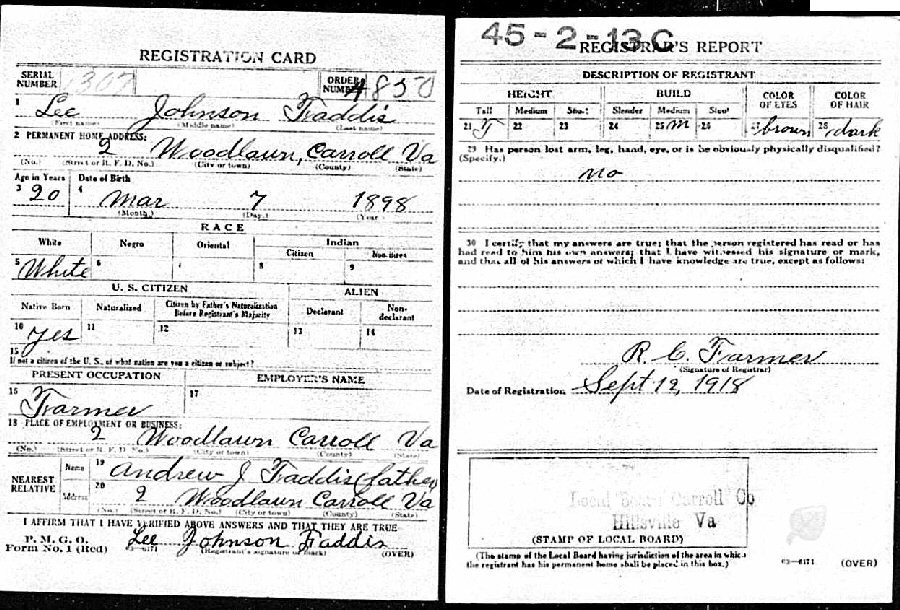 REGISTRATION CARD
SERIAL NUMBER 1307 ORDER NUMBER 4850
1 Lee Johnson Faddis
(First name) (Middle name) (Last name)
2 PERMANENT HOME ADDRESS:
2 Woodlawn, Carroll Va
(No.) (Street or R. F. D. No.) (City or town) (County) (State)
Age in Years Date of Birth
3 20 4 Mar 7 1898
(Month.) (Day.) (Year.)
RACE
White Negro Oriental Indian
Citizen Noncitizen
5 White 6 7 8 9
U. S. CITIZEN ALIEN
Native Born Naturalized Citizen by Father's Naturalization Before Registrant's Majority Declarant Non-declarant
10 yes 11 12 13 14
15
If not a citizen of the U. S., of what nation are you a citizen or subject?
PRESENT OCCUPATION EMPLOYER'S NAME
16 Farmer 17
18 PLACE OF EMPLOYMENT OR BUSINESS:
2 Woodlawn Carroll Va
(No.) (Street or R. F. D. No.) (City or town) (County) (State)
NEAREST RELATIVE Name 19 Andrew J Faddis (father)
Address 20 2 Woodlawn Carroll Va
(No.) (Street or R. F. D. No.) (City or town) (County) (State)
I AFFIRM THAT I HAVE VERIFIED ABOVE ANSWERS AND THAT THEY ARE TRUE
P. M. G. O.
Form No. 1 (Red) 03—6171 Lee Johnson Faddis
(Registrant's signature or mark) (OVER)
45-2-13 C
REGISTRAR'S REPORT
DESCRIPTION OF REGISTRANT
HEIGHT BUILD COLOR OF EYES COLOR OF HAIR
Tall Medium Stout Slender Medium Stout
21 T 22 23 24 25 M 26 27 brown 28 dark
29 Has person lost arm, leg, hand, eye, or is he obviously physically disqualified?
(Specify.)
no
30 I certify that my answers are true; that the person registered has read or has
had read to him his own answers; that I have witnessed his signature or mark,
and that all of his answers of which I have knowledge are true, except as follows:
R. C. Farmer
(Signature of Registrar)
Date of Registration Sept 12, 1918
Local Board Carroll Co
Hillsville Va
(STAMP OF LOCAL BOARD)
(The stamp of the Local Board having jurisdiction of the area in which
the registrant has his permanent home shall be placed in this box.)
03—6171 (OVER)